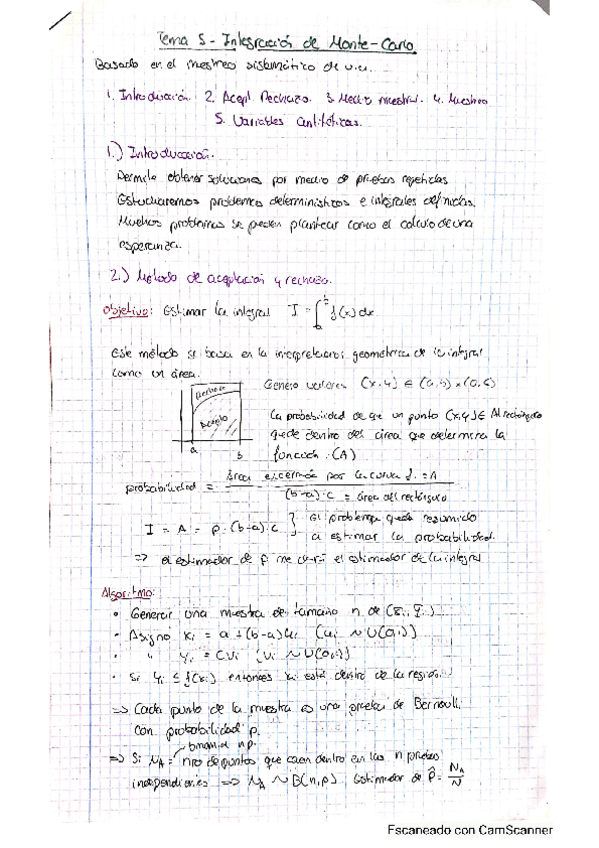 Tema 5 - Integración de Monte-Carlo
Basado en el muestreo sistemático de v.a.
1. Introducción. 2. Acept. Rechazo. 3. Medio muestral. 4. Muestreo
5. Variables antitéticas.
1.) Introducción.
Permite obtener soluciones por medio de pruebas repetidas
Estudiaremos problemas determinísticos e integrales definidas.
Muchos problemas se pueden plantear como el cálculo de una
esperanza.
2.) Método de aceptación y rechazo.
Objetivo: Estimar la integral I = ∫ f(x) dx
Este método se basa en la interpretación geométrica de la integral
como un área.
Genero valores (x,y) ∈
Rechazo
Acepto
a b
La probabilidad de que un punto (x,y) ∈ Al rectángulo
quede dentro del área que determina la
función. (A)
probabilidad = área encerrada por la curva f. = A / (b-a)·c = área del rectángulo
I = A = p·(b-a)·c } El problema queda resumido
a estimar la probabilidad.
=> el estimador de p me dará el estimador de la integral
Algoritmo:
• Generar una muestra de tamaño n de
• Asigno xi = a + (b-a)ui (ui ~ U(0,1))
• " yi = cvi (vi ~ U(0,1))
• Si yi ≤ f(xi) entonces xi está dentro de la región.
=> Cada punto de la muestra es una prueba de Bernoulli
con probabilidad p.
binomial n p.
=> Si NA = nro de puntos que caen dentro en las n pruebas
independientes => NA ~ B(n,p) Estimador de p̂ = NA/N
Escaneado con CamScanner